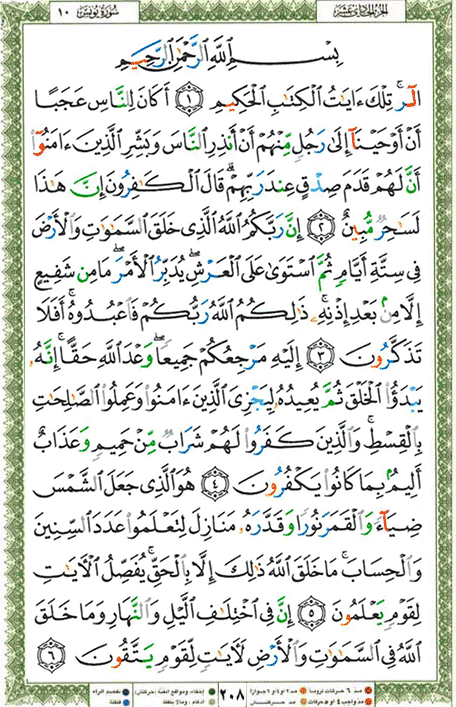 سورة يونس ١٠
الجزء الحادي عشر
بِسْمِ ٱللَّهِ ٱلرَّحْمَٰنِ ٱلرَّحِيمِ
الٓر ۚ تِلْكَ ءَايَٰتُ ٱلْكِتَٰبِ ٱلْحَكِيمِ ۝١ أَكَانَ لِلنَّاسِ عَجَبًا
أَنْ أَوْحَيْنَآ إِلَىٰ رَجُلٍ مِّنْهُمْ أَنْ أَنذِرِ ٱلنَّاسَ وَبَشِّرِ ٱلَّذِينَ ءَامَنُوٓا۟
أَنَّ لَهُمْ قَدَمَ صِدْقٍ عِندَ رَبِّهِمْ ۗ قَالَ ٱلْكَٰفِرُونَ إِنَّ هَٰذَا
لَسَٰحِرٌ مُّبِينٌ ۝٢ إِنَّ رَبَّكُمُ ٱللَّهُ ٱلَّذِى خَلَقَ ٱلسَّمَٰوَٰتِ وَٱلْأَرْضَ
فِى سِتَّةِ أَيَّامٍ ثُمَّ ٱسْتَوَىٰ عَلَى ٱلْعَرْشِ ۖ يُدَبِّرُ ٱلْأَمْرَ ۖ مَا مِن شَفِيعٍ
إِلَّا مِنۢ بَعْدِ إِذْنِهِۦ ۚ ذَٰلِكُمُ ٱللَّهُ رَبُّكُمْ فَٱعْبُدُوهُ ۚ أَفَلَا
تَذَكَّرُونَ ۝٣ إِلَيْهِ مَرْجِعُكُمْ جَمِيعًا ۖ وَعْدَ ٱللَّهِ حَقًّا ۚ إِنَّهُۥ
يَبْدَؤُا۟ ٱلْخَلْقَ ثُمَّ يُعِيدُهُۥ لِيَجْزِىَ ٱلَّذِينَ ءَامَنُوا۟ وَعَمِلُوا۟ ٱلصَّٰلِحَٰتِ
بِٱلْقِسْطِ ۚ وَٱلَّذِينَ كَفَرُوا۟ لَهُمْ شَرَابٌ مِّنْ حَمِيمٍ وَعَذَابٌ
أَلِيمٌۢ بِمَا كَانُوا۟ يَكْفُرُونَ ۝٤ هُوَ ٱلَّذِى جَعَلَ ٱلشَّمْسَ
ضِيَآءً وَٱلْقَمَرَ نُورًا وَقَدَّرَهُۥ مَنَازِلَ لِتَعْلَمُوا۟ عَدَدَ ٱلسِّنِينَ
وَٱلْحِسَابَ ۚ مَا خَلَقَ ٱللَّهُ ذَٰلِكَ إِلَّا بِٱلْحَقِّ ۚ يُفَصِّلُ ٱلْءَايَٰتِ
لِقَوْمٍ يَعْلَمُونَ ۝٥ إِنَّ فِى ٱخْتِلَٰفِ ٱلَّيْلِ وَٱلنَّهَارِ وَمَا خَلَقَ
ٱللَّهُ فِى ٱلسَّمَٰوَٰتِ وَٱلْأَرْضِ لَءَايَٰتٍ لِّقَوْمٍ يَتَّقُونَ ۝٦
٢٠٨